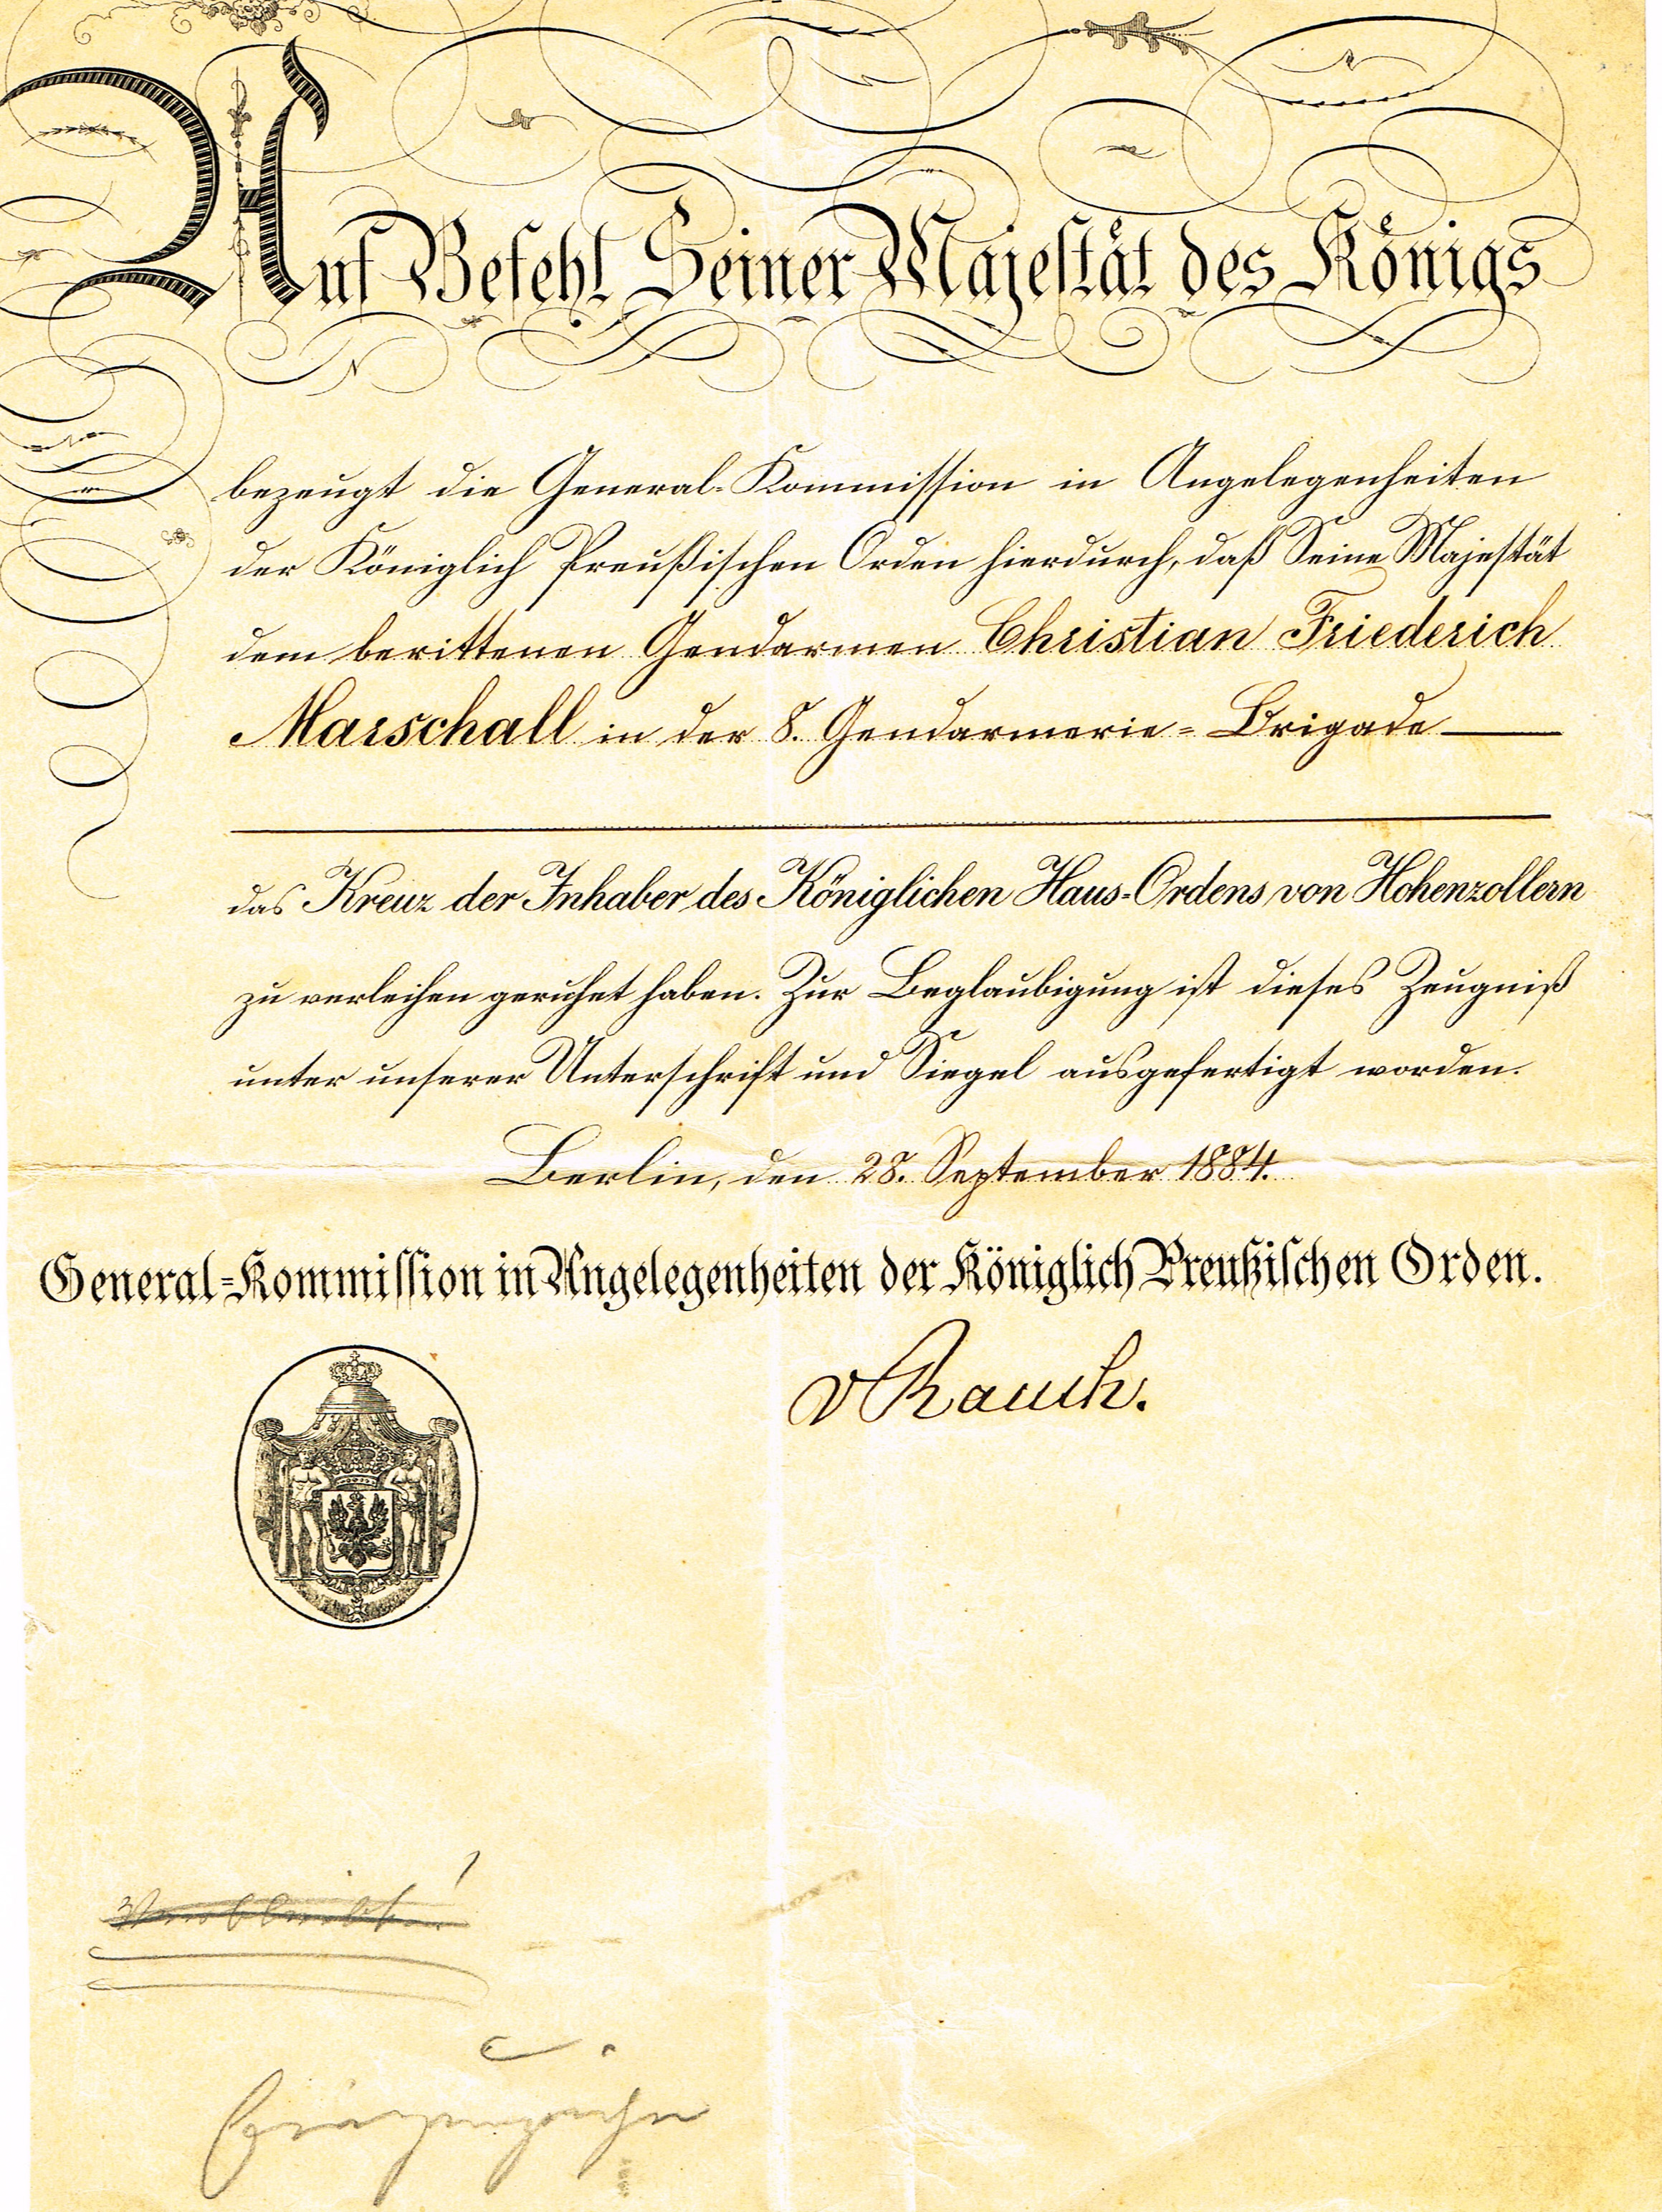 Auf Befehl Seiner Majestät des Königs
bezeugt die General-Kommission in Angelegenheiten
der Königlich Preußischen Orden hierdurch, daß Seine Majestät
dem berittenen Gendarmen Christian Friederich
Marschall in der 8. Gendarmerie-Brigade
das Kreuz der Inhaber des Königlichen Haus-Ordens von Hohenzollern
zu verleihen geruhet haben. Zur Beglaubigung ist dieses Zeugniß
unter unserer Unterschrift und Siegel ausgefertigt worden.
Berlin, den 28. September 1884.
General-Kommission in Angelegenheiten der Königlich Preußischen Orden.
v Rauch.